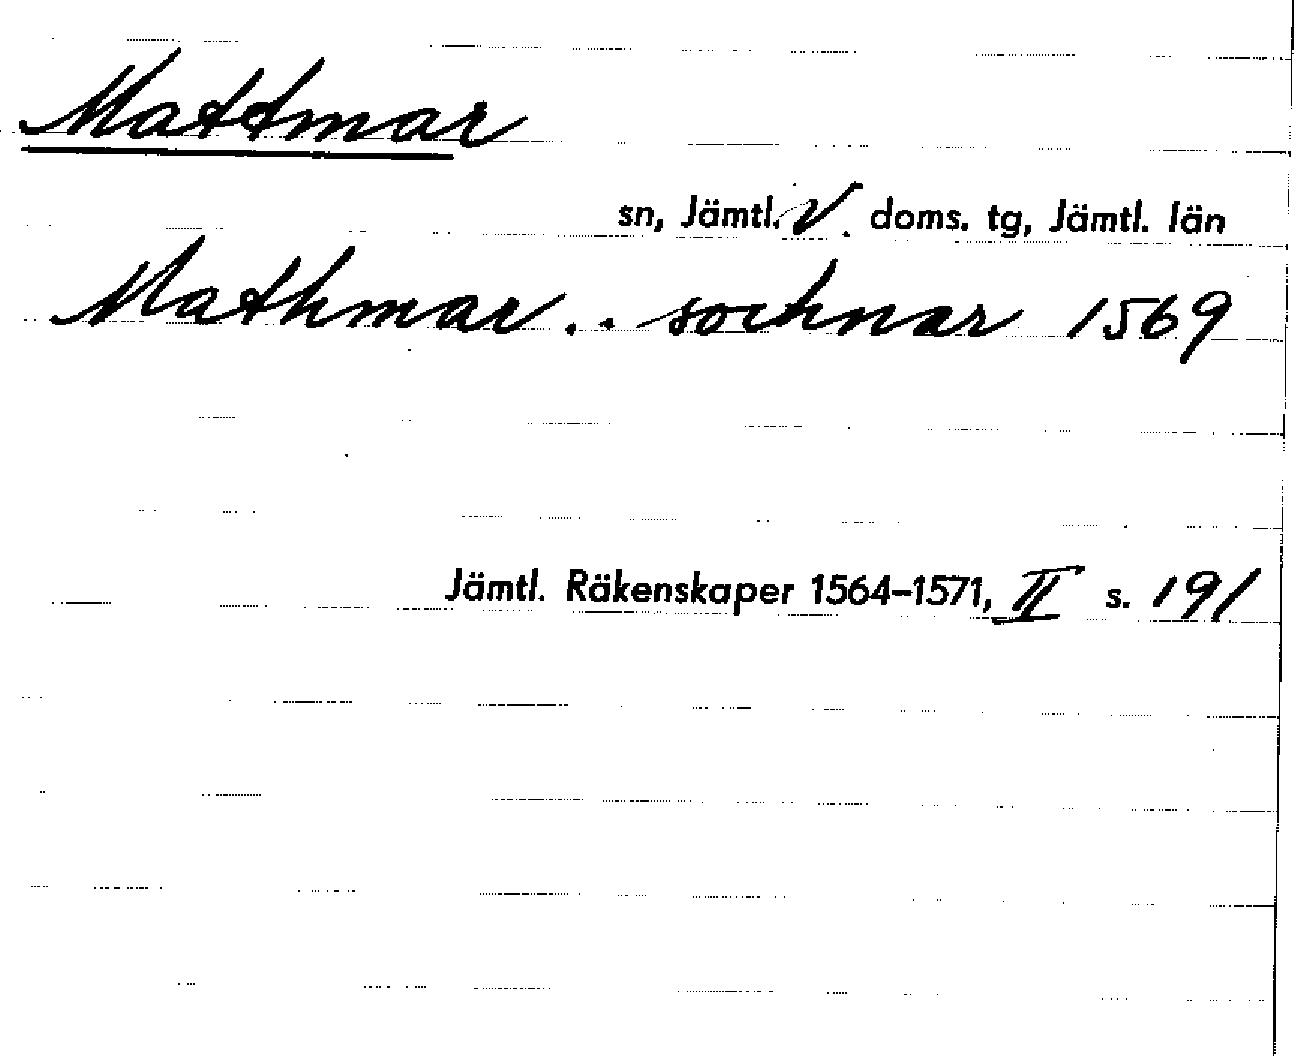 Mattmar
sn, Jämtl. V. doms. tg, Jämtl. län
Mathmar .. sochnar 1569
Jämtl. Räkenskaper 1564–1571, II s. 191